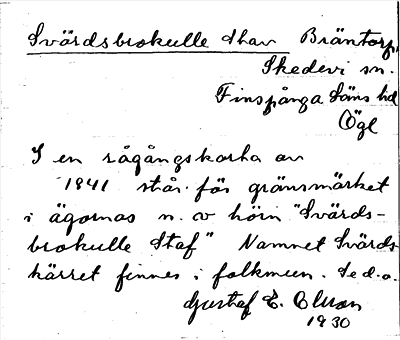 Svärdsbrokulle Stav Bräntorp,
Skedevi sn.
Finspånga läns hd
Ögl
I en rågångskarta av
1841 står för gränsmärket
i ägornas n. v hörn "Svärds-
brokulle Staf" Namnet Svärds
kärret finnes i folkmun. Se d.o.
Gustaf E. Olsson
1930